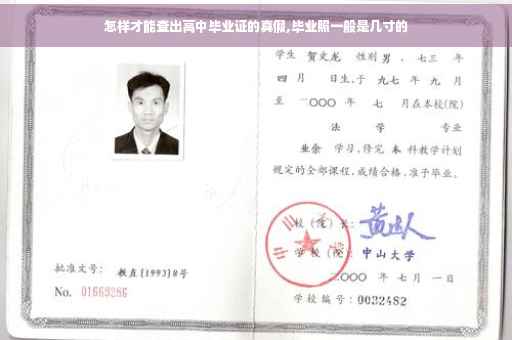 怎样才能查出高中毕业证的真假,毕业照一般是几寸的
学生 贺文龙 性别 男 、七三 年
四 月 日生,于 九七 年 九 月
至 二〇〇〇 年 七 月在本校(院)
法 学 专业
业余 学习,修完 本 科教学计划
规定的全部课程,成绩合格,准予毕业。
校(院)长:
学 校(院): 中山大学
二〇〇〇 年 七 月 一 日
批准文号: 教直[1993]8号
No. 01669286
学校编号: 0032482